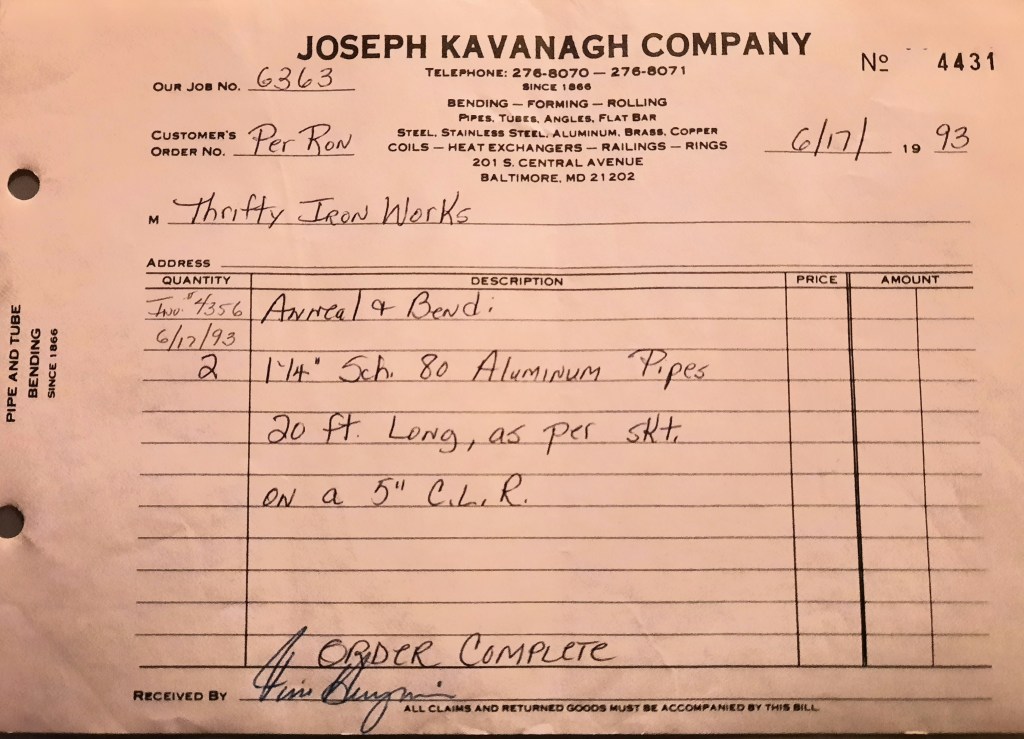 JOSEPH KAVANAGH COMPANY
Nº 4431
TELEPHONE: 276-8070 — 276-8071
OUR JOB NO. 6363
SINCE 1866
BENDING — FORMING — ROLLING
PIPES, TUBES, ANGLES, FLAT BAR
CUSTOMER'S ORDER NO. Per Ron
STEEL, STAINLESS STEEL, ALUMINUM, BRASS, COPPER
COILS — HEAT EXCHANGERS — RAILINGS — RINGS
6/17/ 19 93
201 S. CENTRAL AVENUE
BALTIMORE, MD 21202
M Thrifty Iron Works
ADDRESS
QUANTITY DESCRIPTION PRICE AMOUNT
Inv. # 4356 Anneal & Bend:
6/17/93
2 1 1/4" Sch. 80 Aluminum Pipes
20 ft. Long, as per skt.
on a 5" C.L.R.
ORDER COMPLETE
RECEIVED BY
ALL CLAIMS AND RETURNED GOODS MUST BE ACCOMPANIED BY THIS BILL
PIPE AND TUBE
BENDING
SINCE 1866